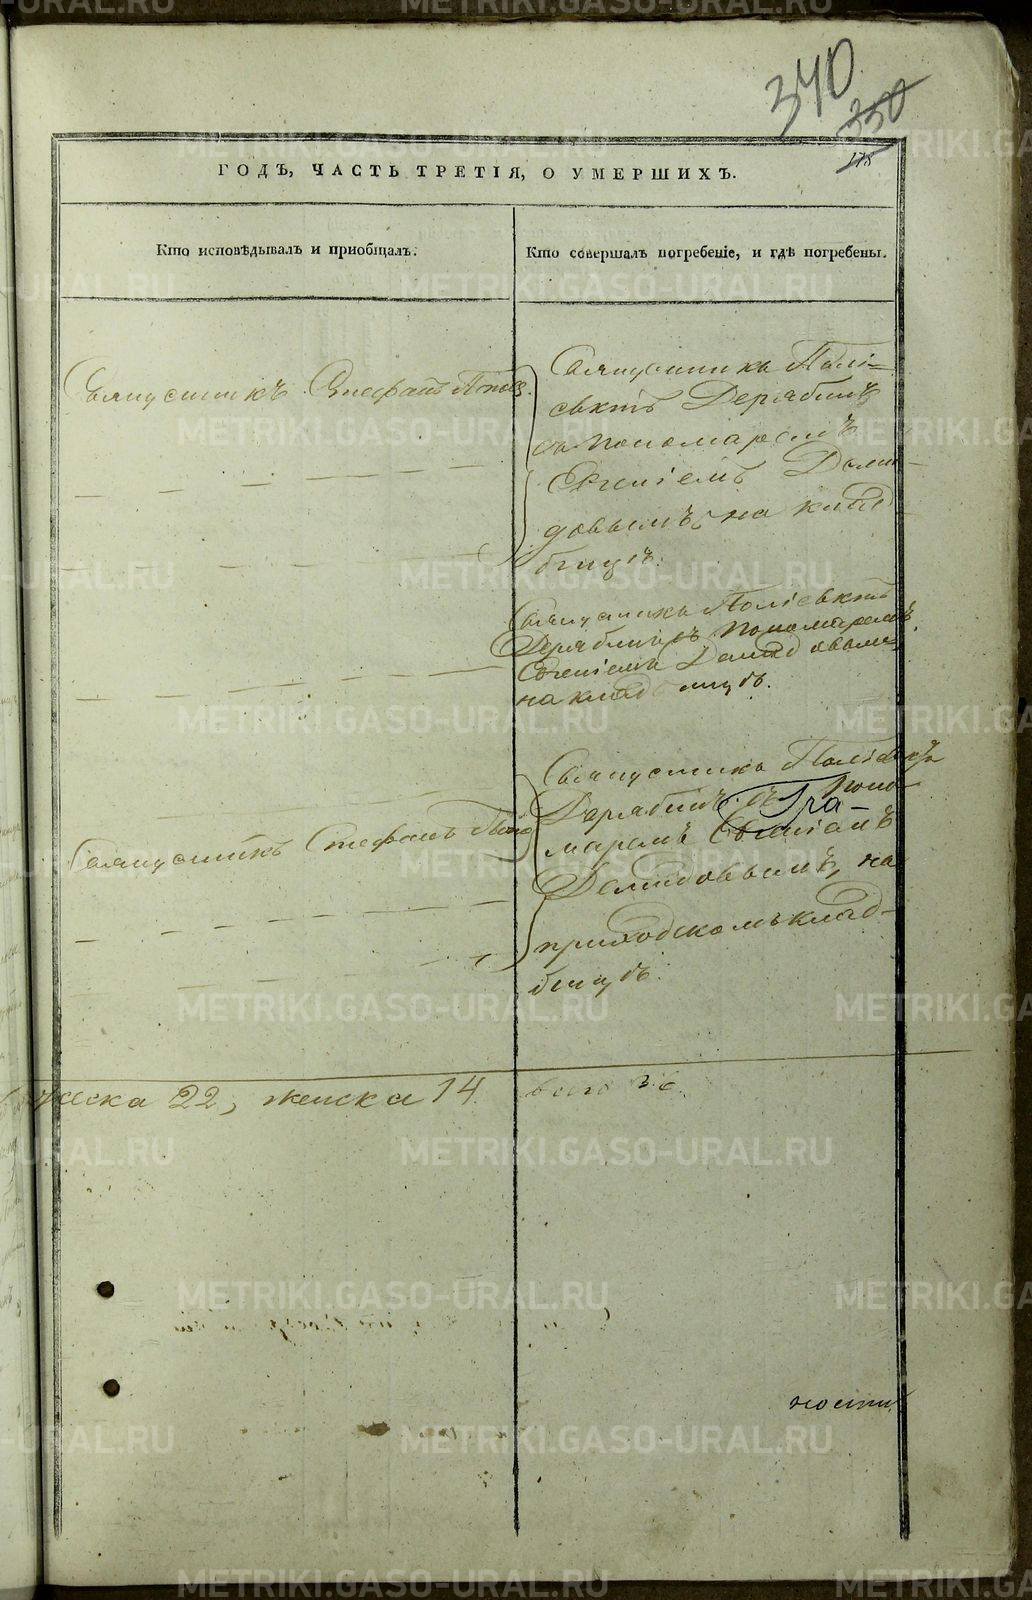 340
330
178
ГОДЪ, ЧАСТЬ ТРЕТІЯ, О УМЕРШИХЪ.
Кто исповѣдывалъ и пріобщалъ.
Кто совершалъ погребеніе, и гдѣ погребены.
Священникъ Стефанъ
Священникъ Полі-
евктъ Дерябинъ
съ пономаремъ
Евгеніемъ Деми-
довымъ на клад-
бищѣ.
Священникъ Поліевктъ
Дерябинъ съ пономаремъ
Евгеніемъ Демидовымъ
на кладбищѣ.
Священникъ Стефанъ
Священникъ Поліевктъ
Дерябинъ съ поно-
Гра-
маремъ Евгеніемъ
Демидовымъ, на
приходскомъ клад-
бищѣ.
мужеска 22, женска 14. всего 36.
ности
METRIKI.GASO-URAL.RU